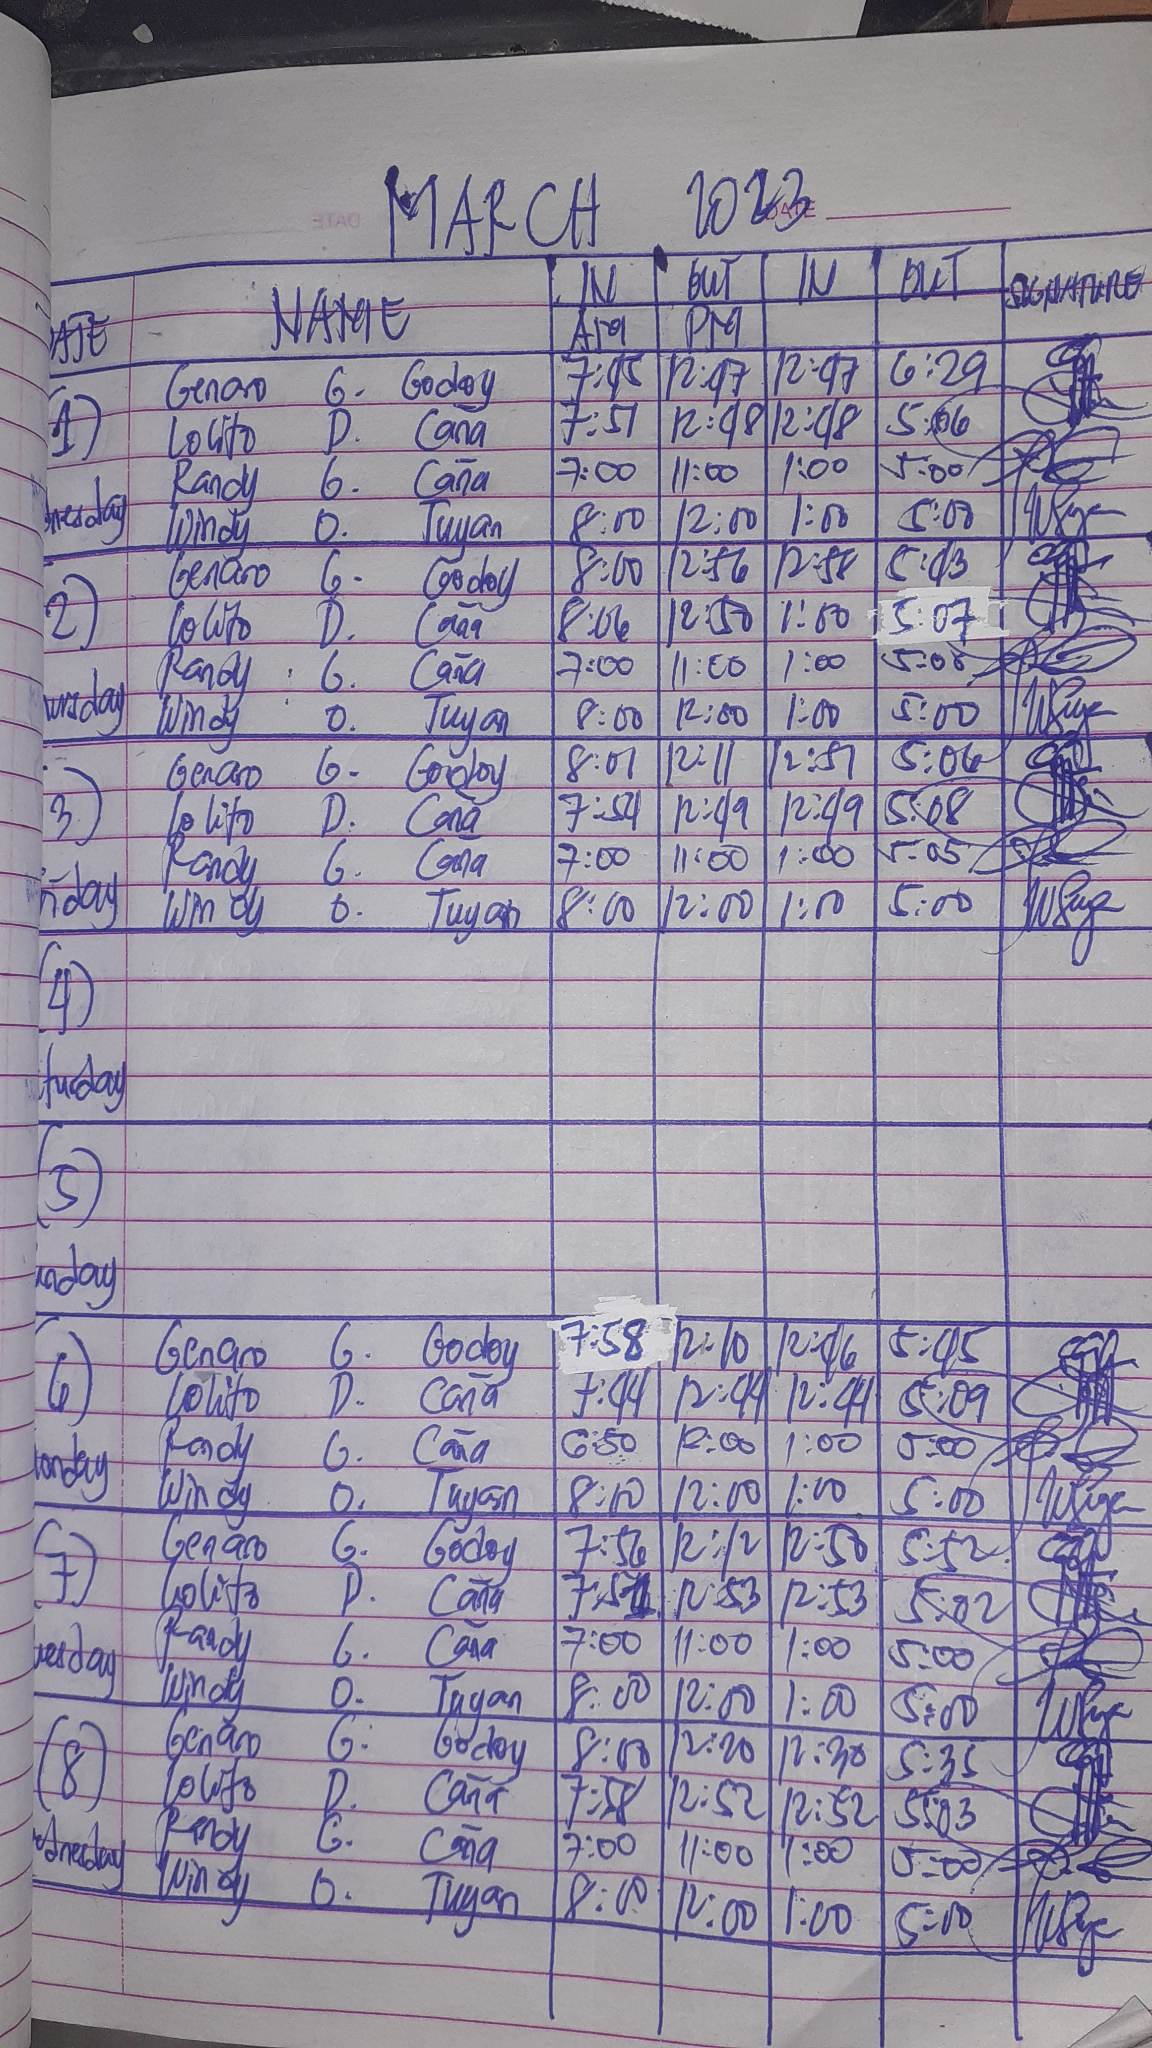 MARCH 2023
DATE
DATE
NAME IN OUT IN OUT SIGNATURE
ATE AM PM
(1) Genaro G. Godoy 7:45 12:47 12:47 6:29
Lolito D. Caña 7:51 12:48 12:48 5:06
Randy G. Caña 7:00 11:00 1:00 5:00
nesday Windy O. Tuyan 8:00 12:00 1:00 5:00
2) Genaro G. Godoy 8:00 12:56 12:58 5:43
Lolito D. Caña 8:06 12:50 1:00 5:07
Randy G. Caña 7:00 11:00 1:00 5:00
ursday Windy O. Tuyan 8:00 12:00 1:00 5:00
3) Genaro G. Godoy 8:01 12:11 12:51 5:06
Lolito D. Caña 7:54 12:49 12:49 5:08
Randy G. Caña 7:00 11:00 1:00 5:05
iday Windy O. Tuyan 8:00 12:00 1:00 5:00
(4)
turday
(5)
nday
(6) Genaro G. Godoy 7:58 12:10 12:46 5:45
Lolito D. Caña 7:44 12:44 12:44 5:09
Randy G. Caña 6:50 12:00 1:00 5:00
onday Windy O. Tuyan 8:00 12:00 1:00 5:00
(7) Genaro G. Godoy 7:56 12:12 12:50 5:52
Lolito D. Caña 12:53 12:53 5:02
Randy G. Caña 7:00 11:00 1:00 5:00
uesday Windy O. Tuyan 8:00 12:00 1:00 5:00
(8) Genaro G. Godoy 8:00 12:20 12:30 5:35
Lolito D. Caña 7:58 12:52 12:52 5:03
Randy G. Caña 7:00 11:00 1:00 5:00
dnesday Windy O. Tuyan 8:00 12:00 1:00 5:00